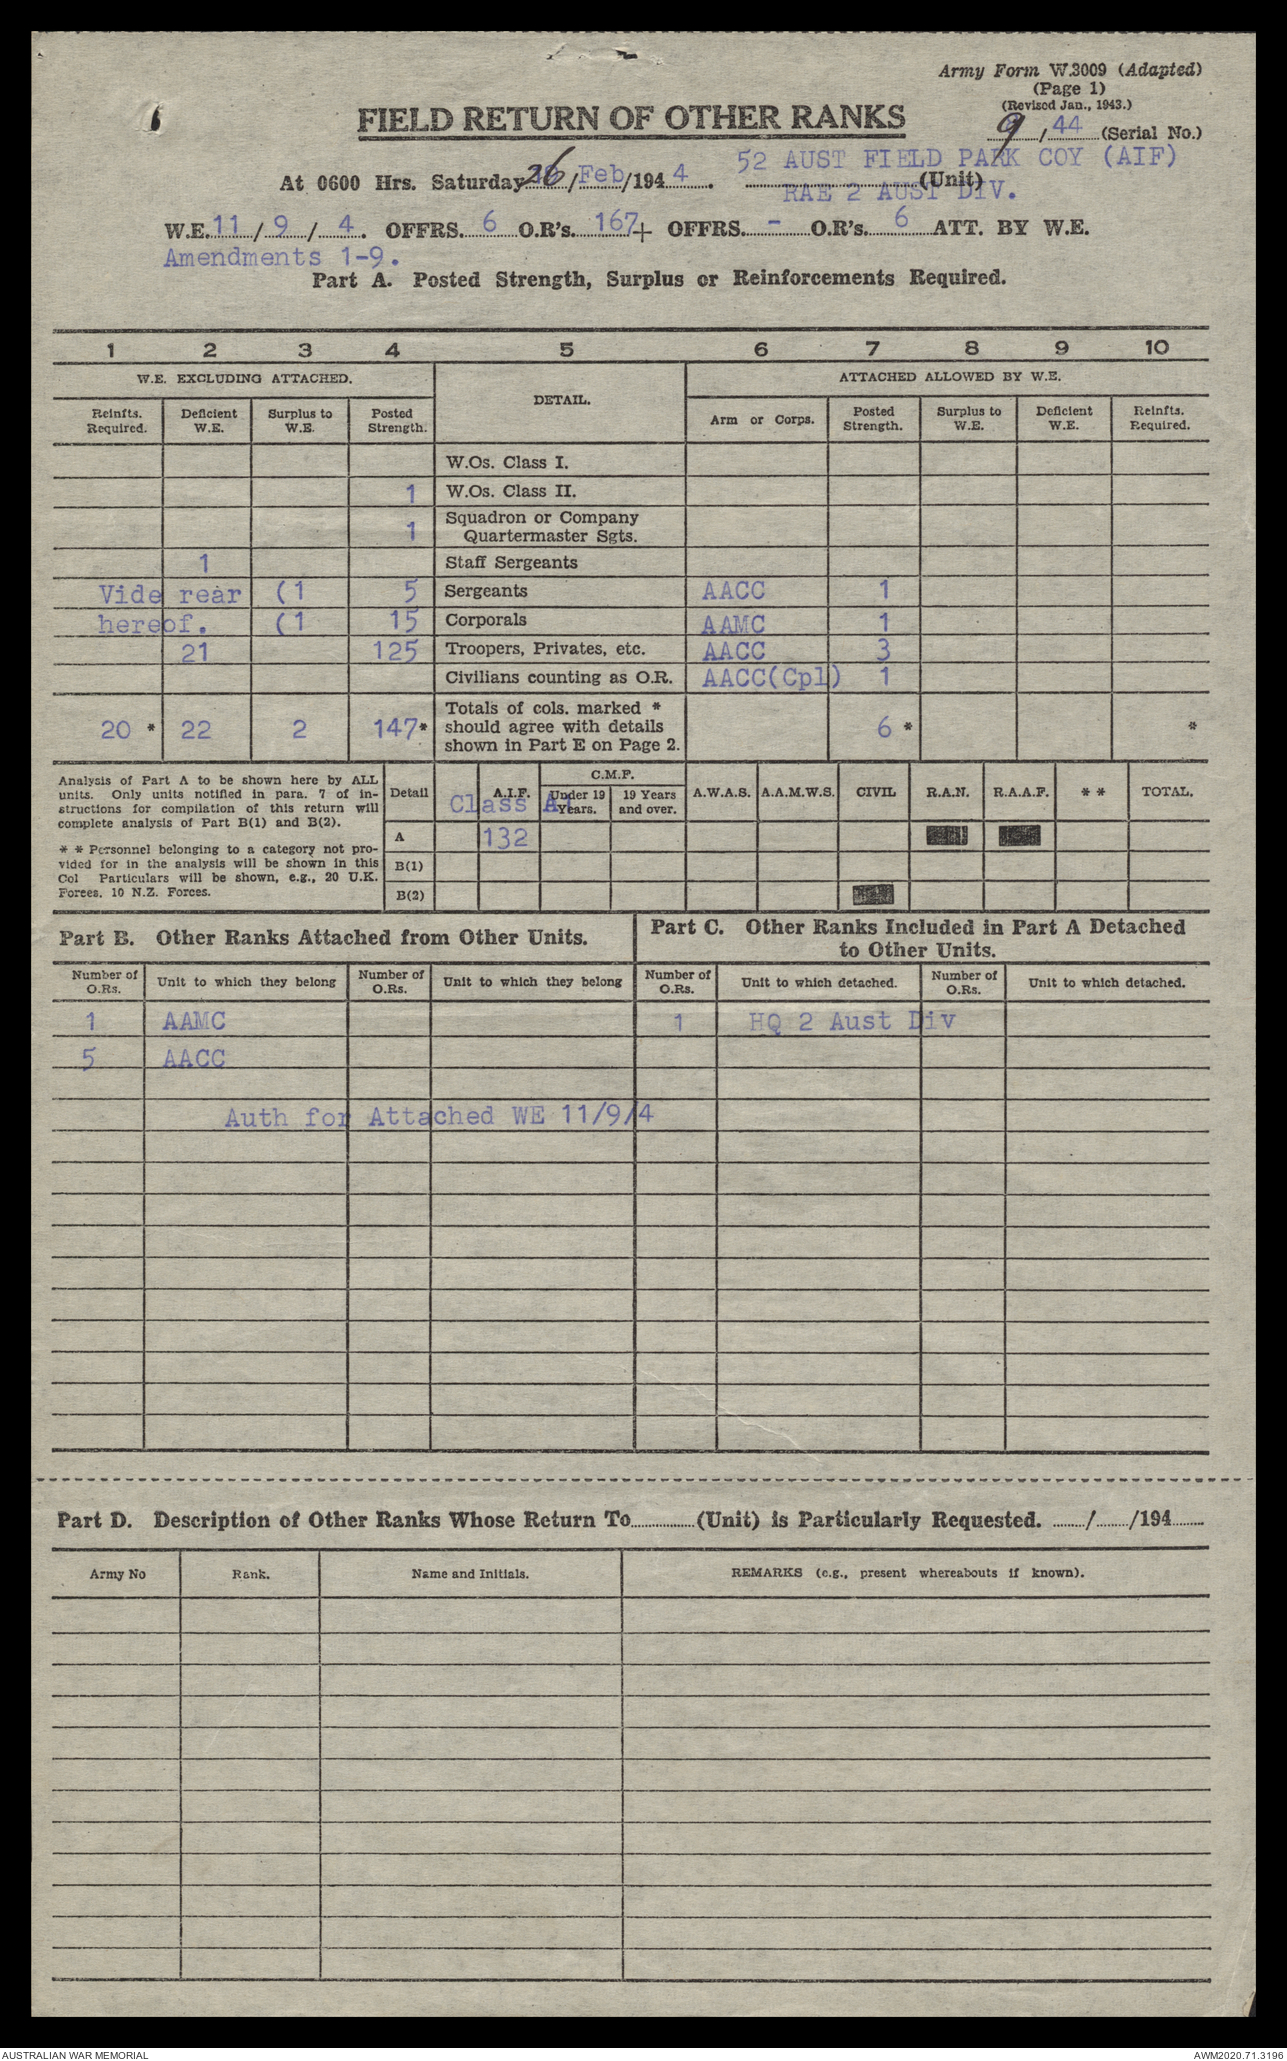 Army Form W.3009 (Adapted)
(Page 1)
(Revised Jan., 1943.)
FIELD RETURN OF OTHER RANKS
9/44 (Serial No.)
52 AUST FIELD PARK COY (AIF)
At 0600 Hrs. Saturday 26/Feb/1944. (Unit)
RAE 2 AUST DIV.
W.E. 11/9/4. OFFRS. 6 O.R's. 167+ OFFRS. - O.R's. 6 ATT. BY W.E.
Amendments 1-9.
Part A. Posted Strength, Surplus or Reinforcements Required.
1 2 3 4 5 6 7 8 9 10
W.E. EXCLUDING ATTACHED. DETAIL. ATTACHED ALLOWED BY W.E.
Reinfts. Required. Deficient W.E. Surplus to W.E. Posted Strength. Arm or Corps. Posted Strength. Surplus to W.E. Deficient W.E. Reinfts. Required.
W.Os. Class I.
1 W.Os. Class II.
1 Squadron or Company Quartermaster Sgts.
1 Staff Sergeants
Vide rear (1 5 Sergeants AACC 1
hereof. (1 15 Corporals AAMC 1
21 125 Troopers, Privates, etc. AACC 3
Civilians counting as O.R. AACC(Cpl) 1
20 * 22 2 147* Totals of cols. marked * should agree with details shown in Part E on Page 2. 6 * *
Analysis of Part A to be shown here by ALL
units. Only units notified in para. 7 of in-
structions for compilation of this return will
complete analysis of Part B(1) and B(2).
* * Personnel belonging to a category not pro-
vided for in the analysis will be shown in this
Col Particulars will be shown, e.g., 20 U.K.
Forces. 10 N.Z. Forces.
Detail A.I.F. C.M.F. Under 19 Years. 19 Years and over. A.W.A.S. A.A.M.W.S. CIVIL R.A.N. R.A.A.F. * * TOTAL.
Class A1
A 132
B(1)
B(2)
Part B. Other Ranks Attached from Other Units.
Part C. Other Ranks Included in Part A Detached
to Other Units.
Number of O.Rs. Unit to which they belong Number of O.Rs. Unit to which they belong Number of O.Rs. Unit to which detached. Number of O.Rs. Unit to which detached.
1 AAMC 1 HQ 2 Aust Div
5 AACC
Auth for Attached WE 11/9/4
Part D. Description of Other Ranks Whose Return To............(Unit) is Particularly Requested. ....../....../194......
Army No Rank. Name and Initials. REMARKS (e.g., present whereabouts if known).
AUSTRALIAN WAR MEMORIAL AWM2020.71.3196